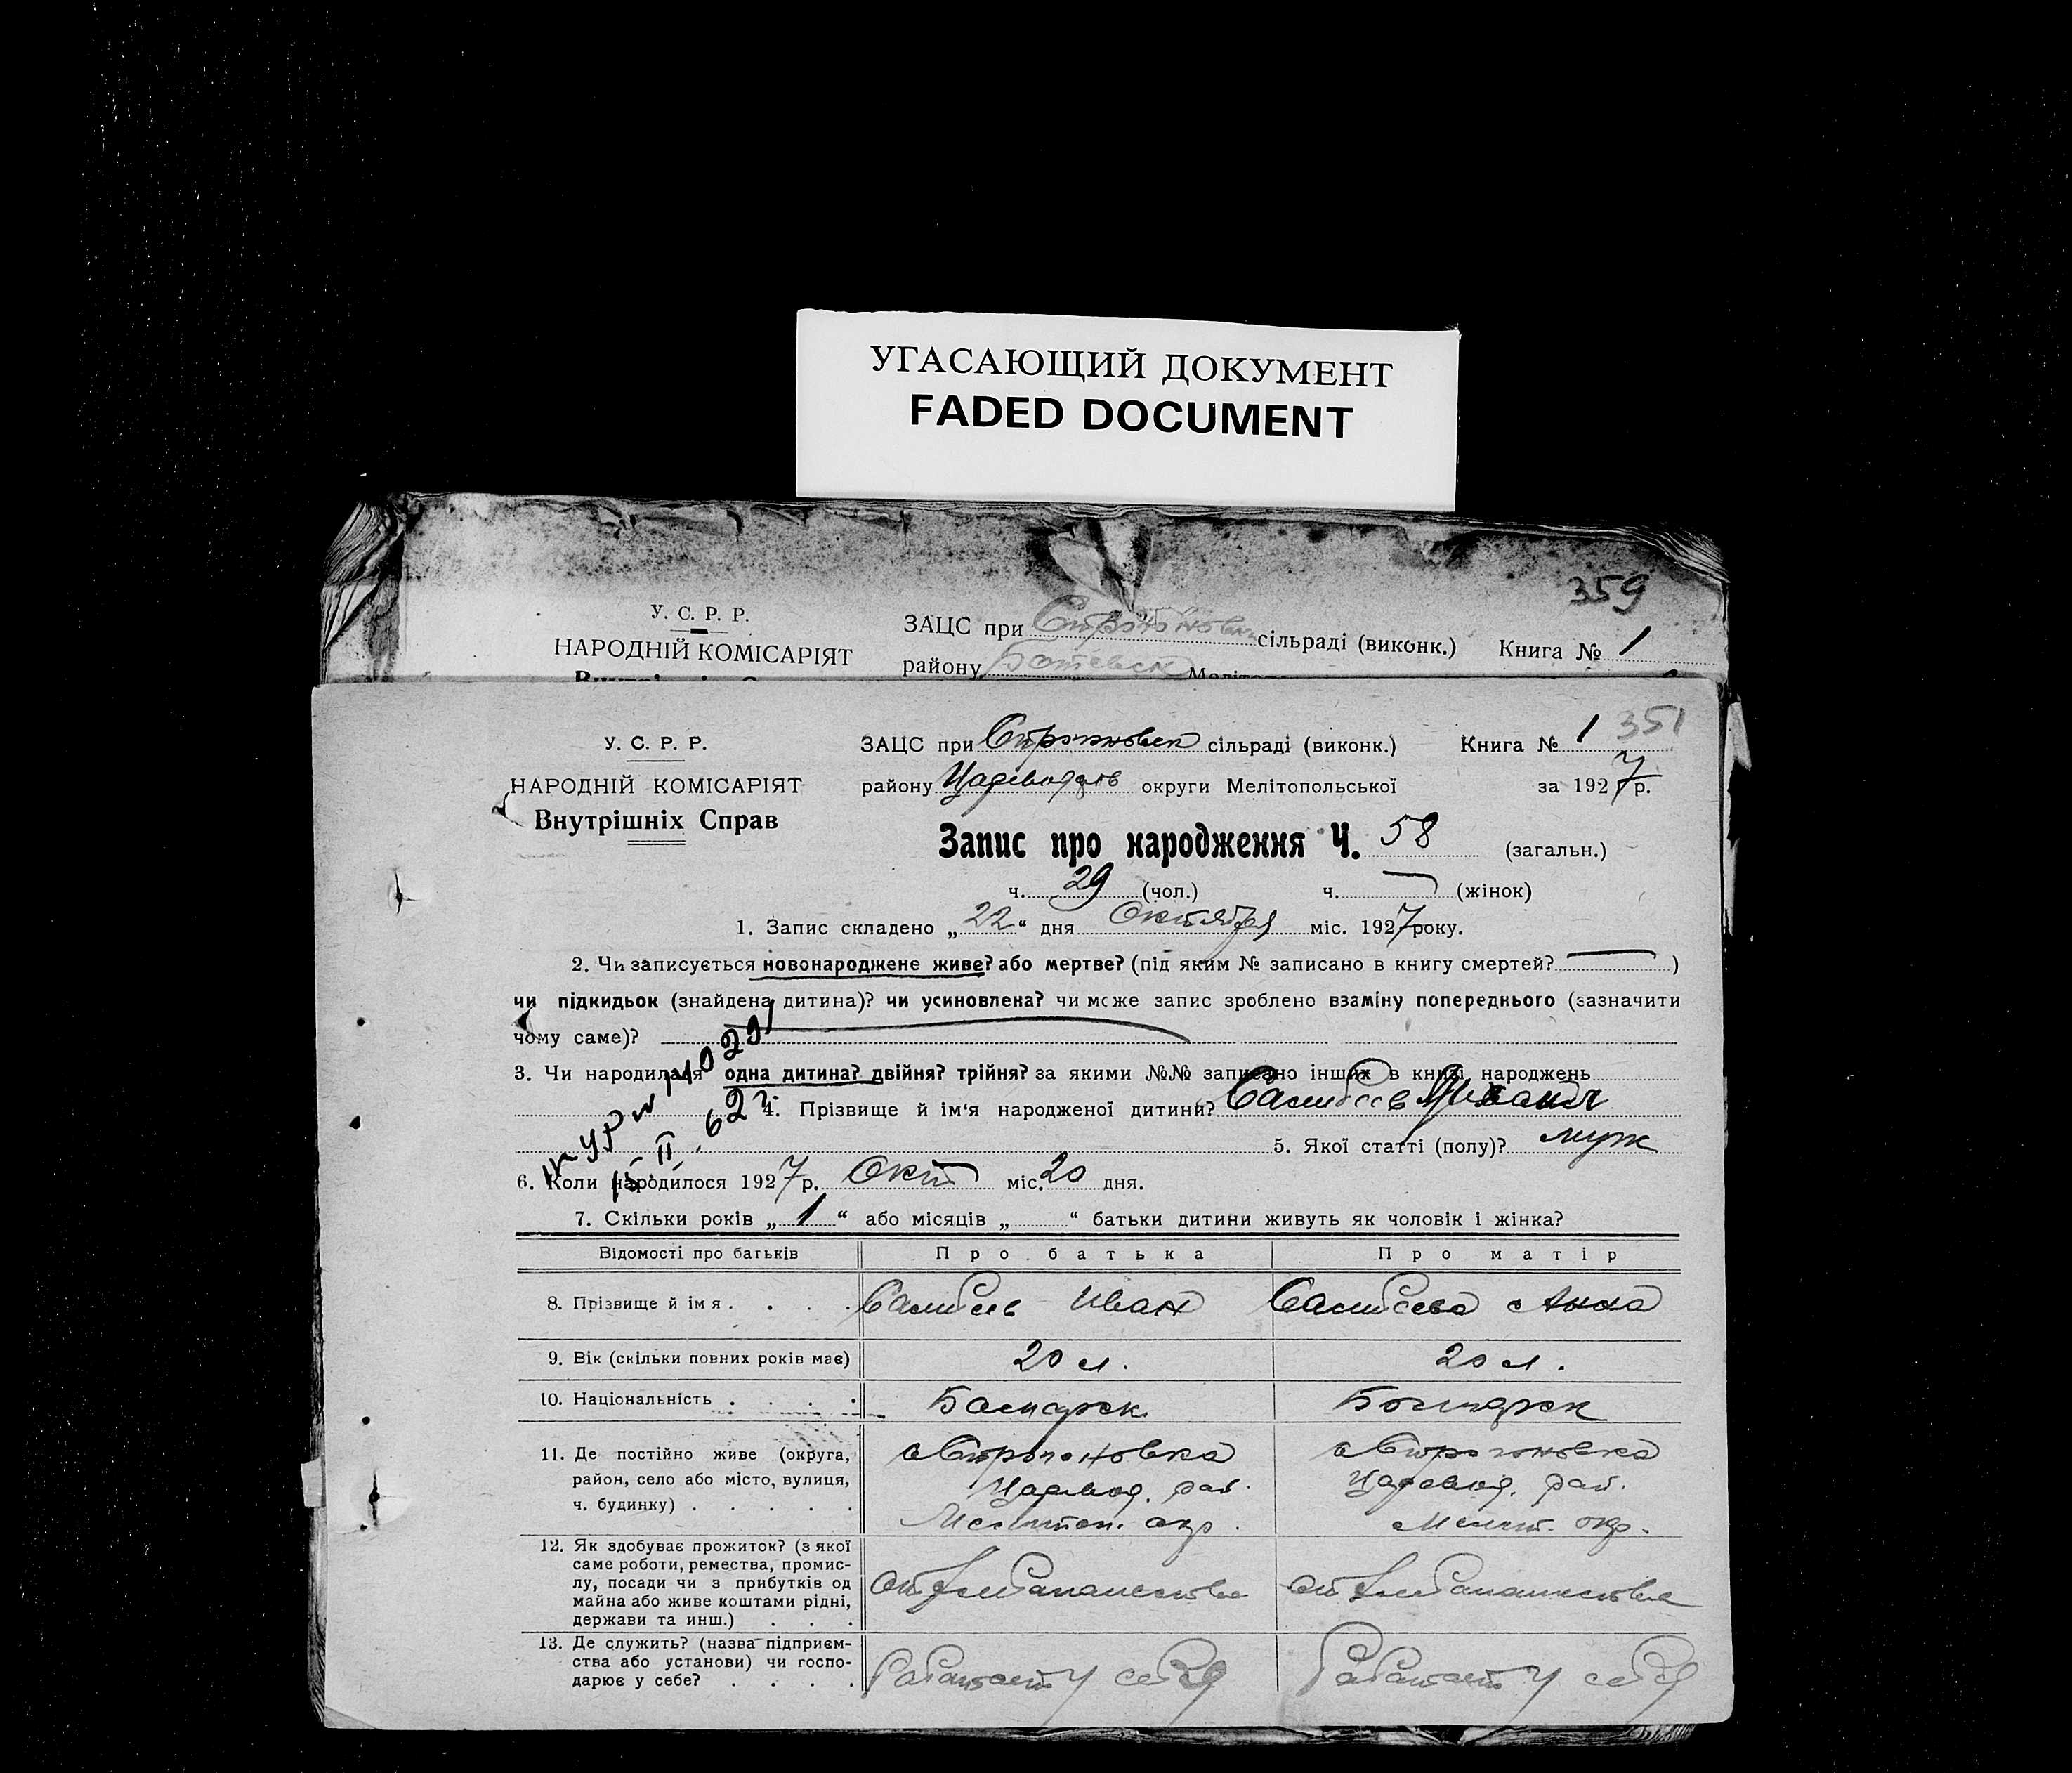 УГАСАЮЩИЙ ДОКУМЕНТ
FADED DOCUMENT
359
У. С. Р. Р.
НАРОДНІЙ КОМІСАРІЯТ
ЗАЦС при сільраді (виконк.) Книга № 1
району Ботевск
351
У. С. Р. Р.
НАРОДНІЙ КОМІСАРІЯТ
Внутрішніх Справ
ЗАЦС при сільраді (виконк.) Книга № 1
району округи Мелітопольської за 1927 р.
Запис про народження Ч. 58 (загальн.)
ч. 29 (чол.) ч. (жінок)
1. Запис складено „22“ дня Октября міс. 1927 року.
2. Чи записується новонароджене живе? або мертве? (під яким № записано в книгу смертей? )
чи підкидьок (знайдена дитина)? чи усиновлена? чи може запис зроблено взаміну попереднього (зазначити
чому саме)?
3. Чи народилася одна дитина? двійня? трійня? за якими №№ записано інших в книзі народжень
4. Прізвище й ім‘я народженої дитини? Михаил
5. Якої статті (полу)? муж
6. Коли народилося 1927 р. Окт міс. 20 дня.
7. Скільки років „1“ або місяців „ “ батьки дитини живуть як чоловік і жінка?
Відомості про батьків Про батька Про матір
8. Прізвище й ім я Иван Анна
9. Вік (скільки повних років має) 20 л. 20 л.
10. Національність Болгарск Болгарск
11. Де постійно живе (округа, район, село або місто, вулиця, ч. будинку)
с Строгоновка с Строгоновка
Царевод. рай. Царевод. рай.
Мелитоп. окр. Мелит. окр.
12. Як здобуває прожиток? (з якої
саме роботи, ремества, промис-
лу, посади чи з прибутків од
майна або живе коштами рідні,
держави та инш.)
13. Де служить? (назва підприєм-
ства або установи) чи госпо-
дарює у себе?
Работает у себя Работает у себя